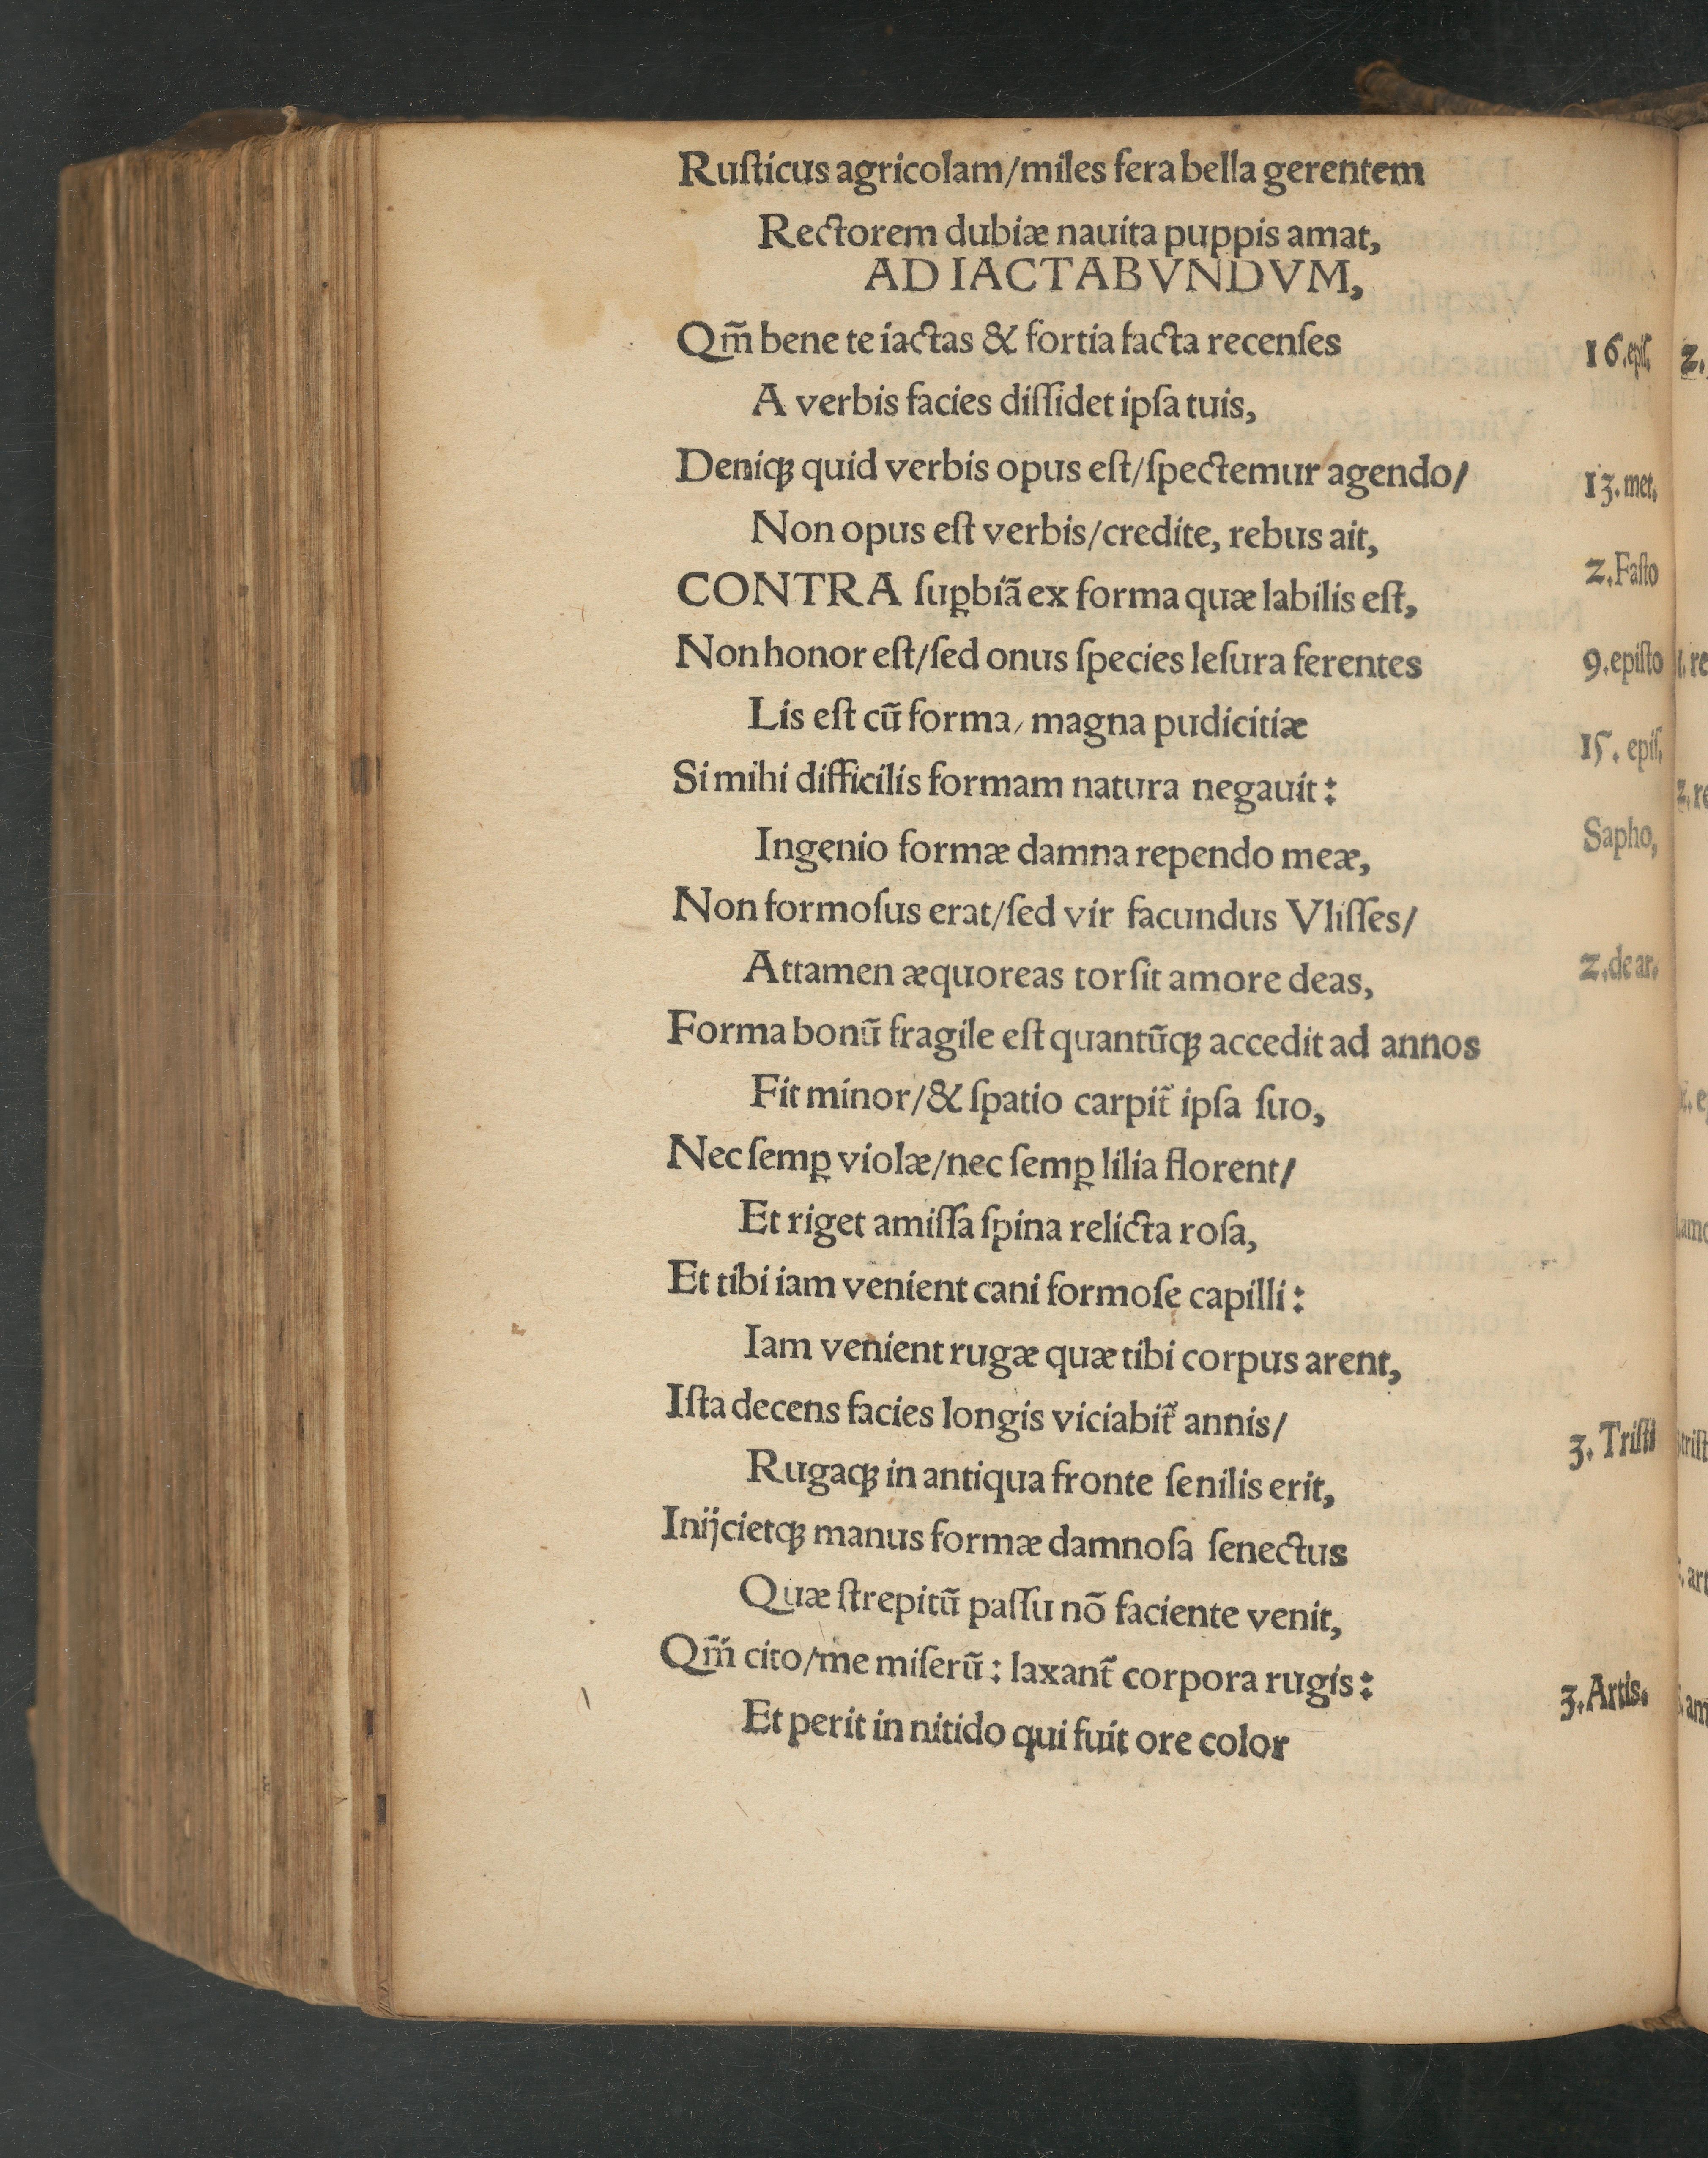 Ruſticus agricolam/miles fera bella gerentem
Rectorem dubiæ nauita puppis amat,
AD IACTABVNDVM,
Qm̃ bene te iactas & fortia facta recenſes
16.epiſ.
A verbis facies diſſidet ipſa tuis,
Deniqꝫ quid verbis opus eſt/ſpectemur agendo/
13.met.
Non opus eſt verbis/credite, rebus ait,
2.Faſto
CONTRA ſuꝑbiã ex forma quæ labilis eſt,
Non honor eſt/ſed onus ſpecies leſura ferentes
9.epiſto
Lis eſt cũ forma/ magna pudicitiæ
15. epiſ.
Si mihi difficilis formam natura negauit:
Sapho,
Ingenio formæ damna rependo meæ,
Non formoſus erat/ſed vir facundus Vliſſes/
2.de ar.
Attamen æquoreas torſit amore deas,
Forma bonũ fragile eſt quantũqꝫ accedit ad annos
Fit minor/& ſpatio carpit̃ ipſa ſuo,
Nec ſemꝑ violæ/nec ſemꝑ lilia florent/
Et riget amiſſa ſpina relicta roſa,
Et tibi iam venient cani formoſe capilli:
Iam venient rugæ quæ tibi corpus arent,
Iſta decens facies longis viciabit̃ annis/
3. Triſti
Rugaqꝫ in antiqua fronte ſenilis erit,
Inijcietqꝫ manus formæ damnoſa ſenectus
Quæ ſtrepitũ paſſu nõ faciente venit,
Qm̃ cito/me miſerũ: laxant̃ corpora rugis:
3.Artis.
Et perit in nitido qui fuit ore color